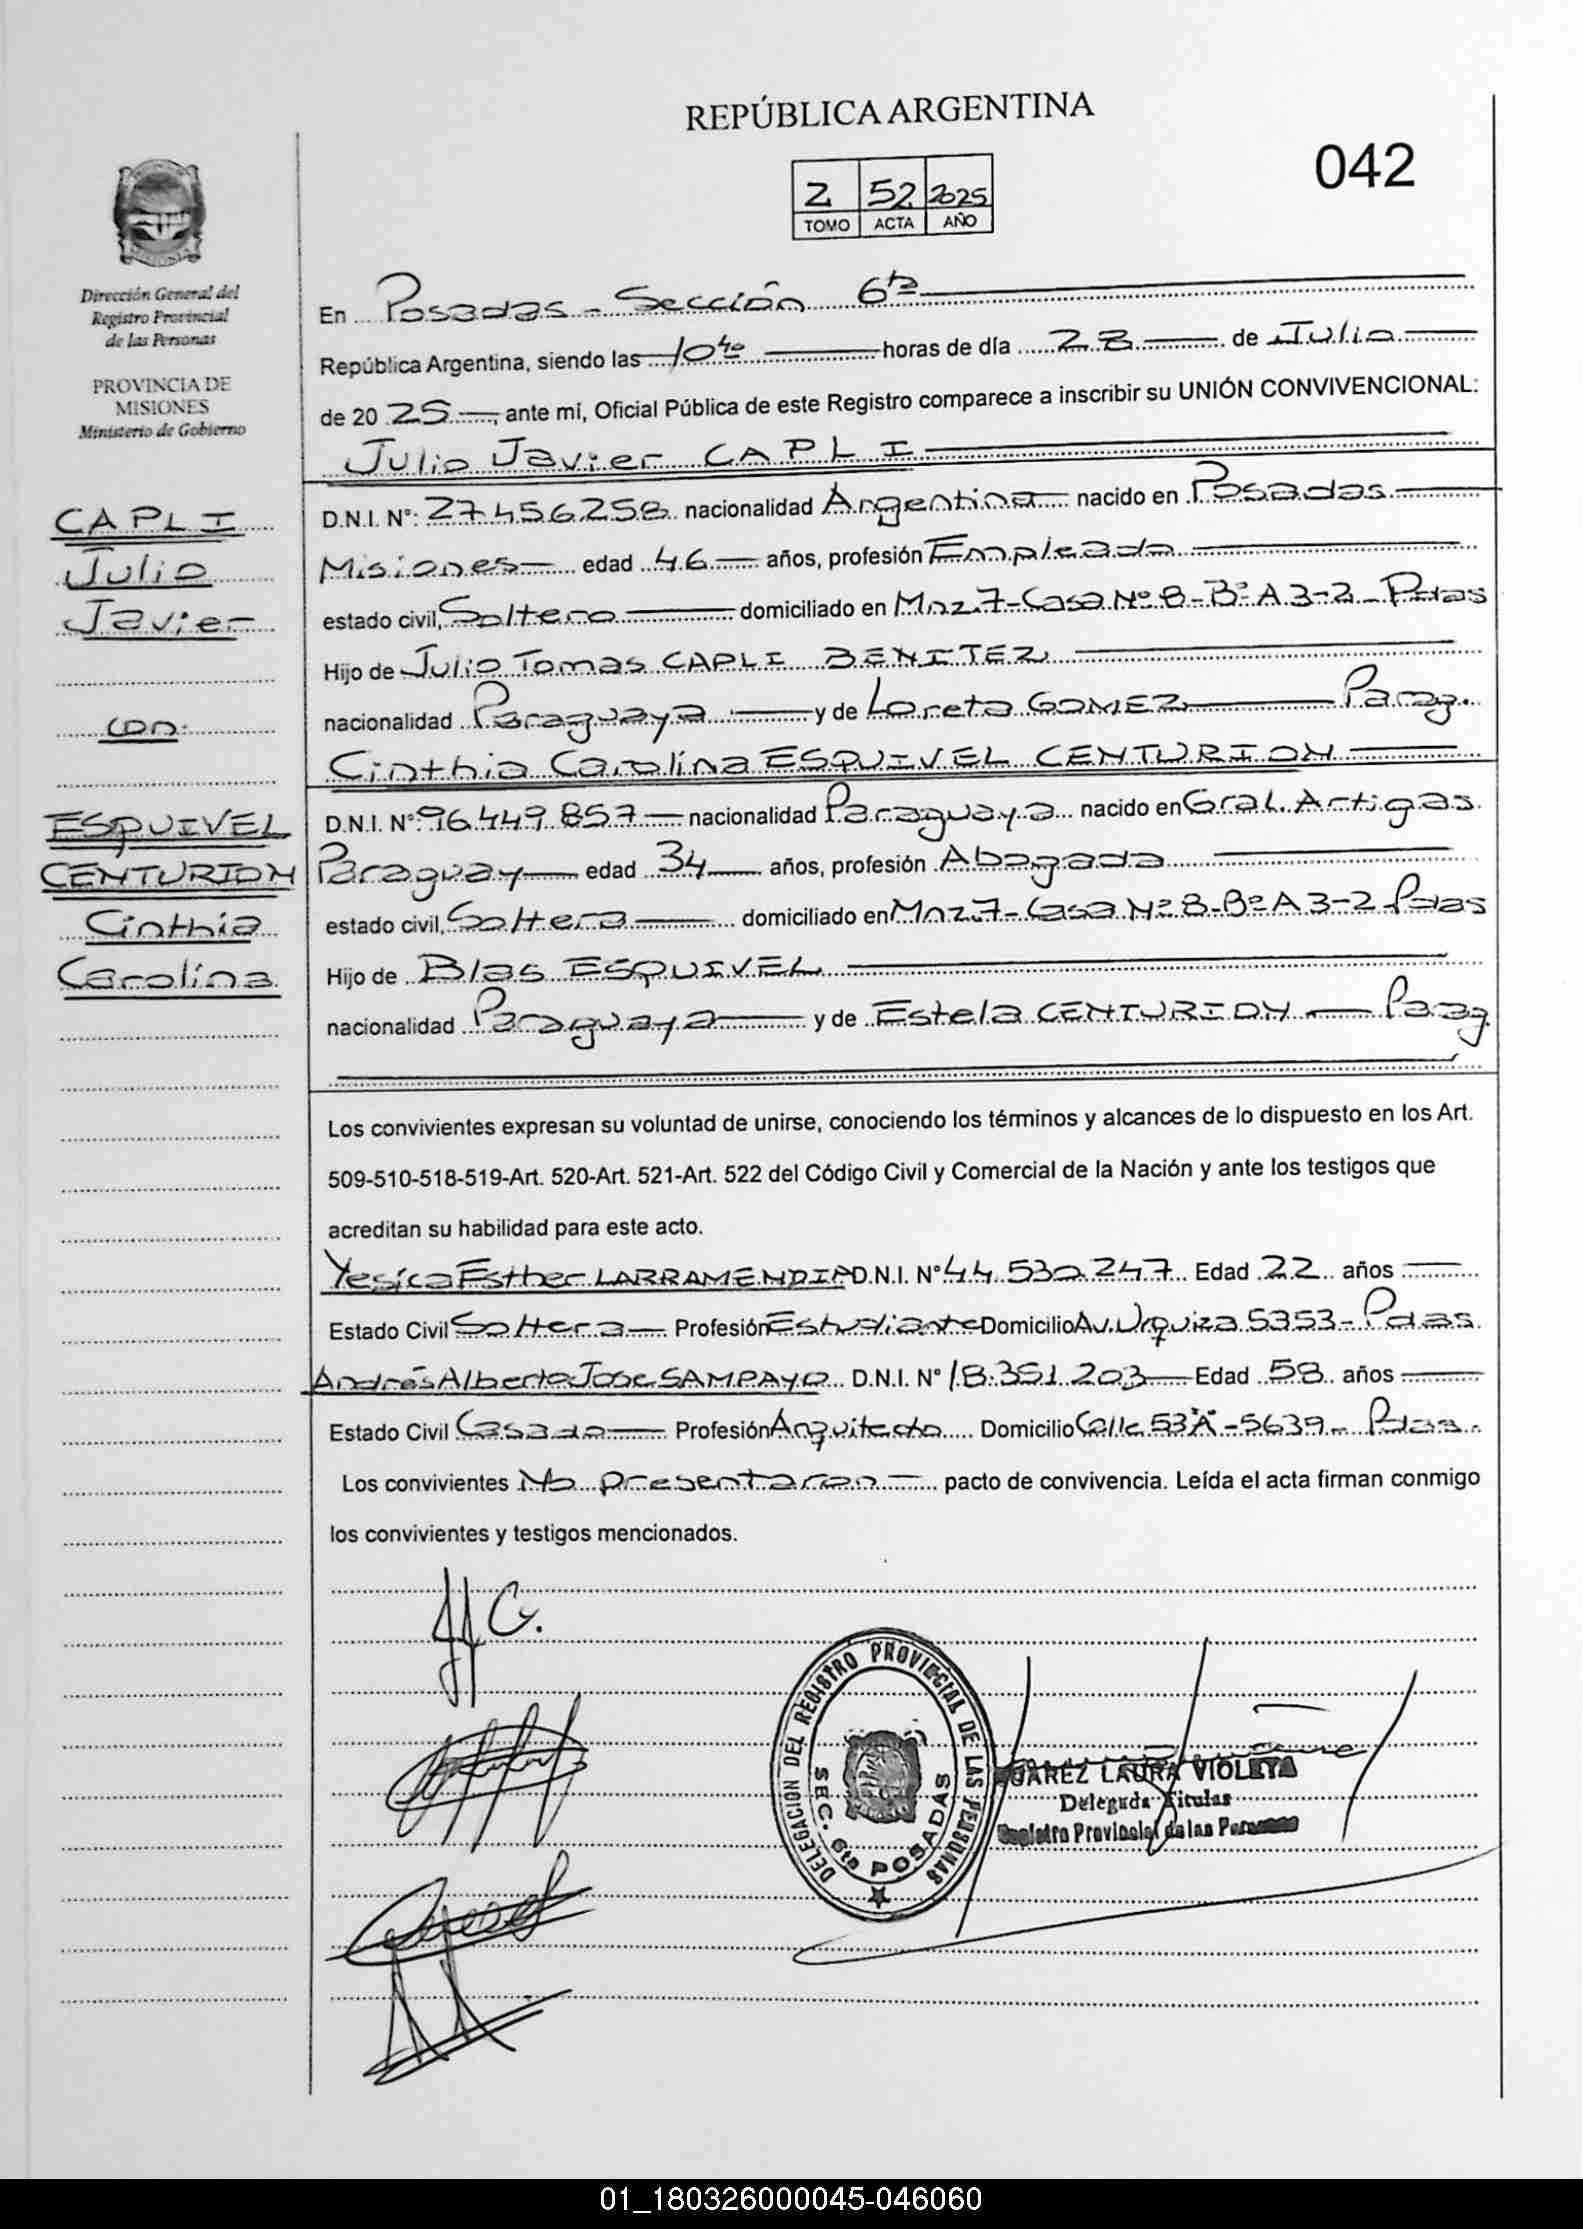 REPÚBLICA ARGENTINA
042
2 52 2025
TOMO ACTA AÑO
Dirección General del
Registro Provincial
de las Personas
PROVINCIA DE
MISIONES
Ministerio de Gobierno
CAPLI
Julio
Javier
con
ESQUIVEL
CENTURION
Cinthia
Carolina
En Posadas - Sección 6ta
República Argentina, siendo las 10:40 horas de día 28 de Julio
de 2025, ante mí, Oficial Pública de este Registro comparece a inscribir su UNIÓN CONVIVENCIONAL:
Julio Javier CAPLI
D.N.I. N°: 27.456.258 nacionalidad Argentina nacido en Posadas
Misiones edad 46 años, profesión Empleado
estado civil, Soltero domiciliado en Mnz.7-Casa Nº 8-Bº A 3-2 - Pdas
Hijo de Julio Tomas CAPLI BENITEZ
nacionalidad Paraguaya y de Loreto GOMEZ Parag.
Cinthia Carolina ESQUIVEL CENTURION
D.N.I. N°: 96.449.857 nacionalidad Paraguaya nacido en Gral. Artigas
Paraguay edad 34 años, profesión Abogada
estado civil, Soltera domiciliado en Mnz.7-Casa Nº 8-Bº A 3-2 Pdas
Hijo de Blas ESQUIVEL
nacionalidad Paraguaya y de Estela CENTURION Parag
Los convivientes expresan su voluntad de unirse, conociendo los términos y alcances de lo dispuesto en los Art.
509-510-518-519-Art. 520-Art. 521-Art. 522 del Código Civil y Comercial de la Nación y ante los testigos que
acreditan su habilidad para este acto.
Yesica Esther LARRAMENDIA D.N.I. N° 44.530.247 Edad 22 años
Estado Civil Soltera Profesión Estudiante Domicilio Av. Urquiza 5353 - Pdas
Andrés Alberto Jose SAMPAYO D.N.I. N° 18.351.203 Edad 58 años
Estado Civil Casado Profesión Arquitecto Domicilio Calle 53"A"-5639- Pdas.
Los convivientes No presentaron pacto de convivencia. Leída el acta firman conmigo
los convivientes y testigos mencionados.
JJC.
DELEGACION DEL REGISTRO PROVINCIAL DE LAS PERSONAS
SEC. 6ta POSADAS
LAURA VIOLETA
Delegada Titular
Registro Provincial de las Personas
01_180326000045-046060